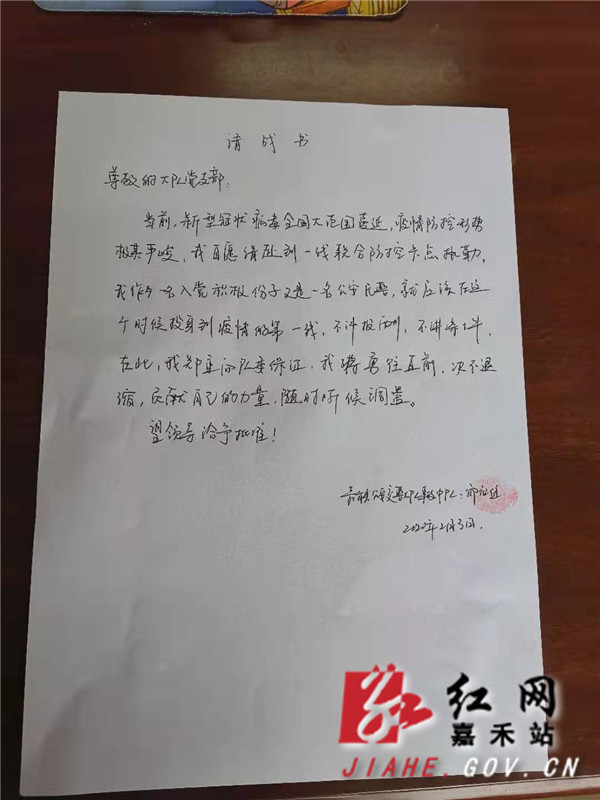 请战书
尊敬的大队党支部：
当前，新型冠状病毒全国大范围蔓延，疫情防控形势
极其严峻，我自愿请赴到一线联合防控卡点执勤。
我作为一名入党积极份子又是一名公安民警，就应该在这
个时候投身到疫情的第一线，不计报酬，不讲条件。
在此，我郑重向队里保证，我将勇往直前，决不退
缩，贡献自己的力量，随时听候调遣。
望领导给予批准！
嘉禾县交警大队中队：
2020年2月3日.
红网
嘉禾站
JIAHE.GOV.CN